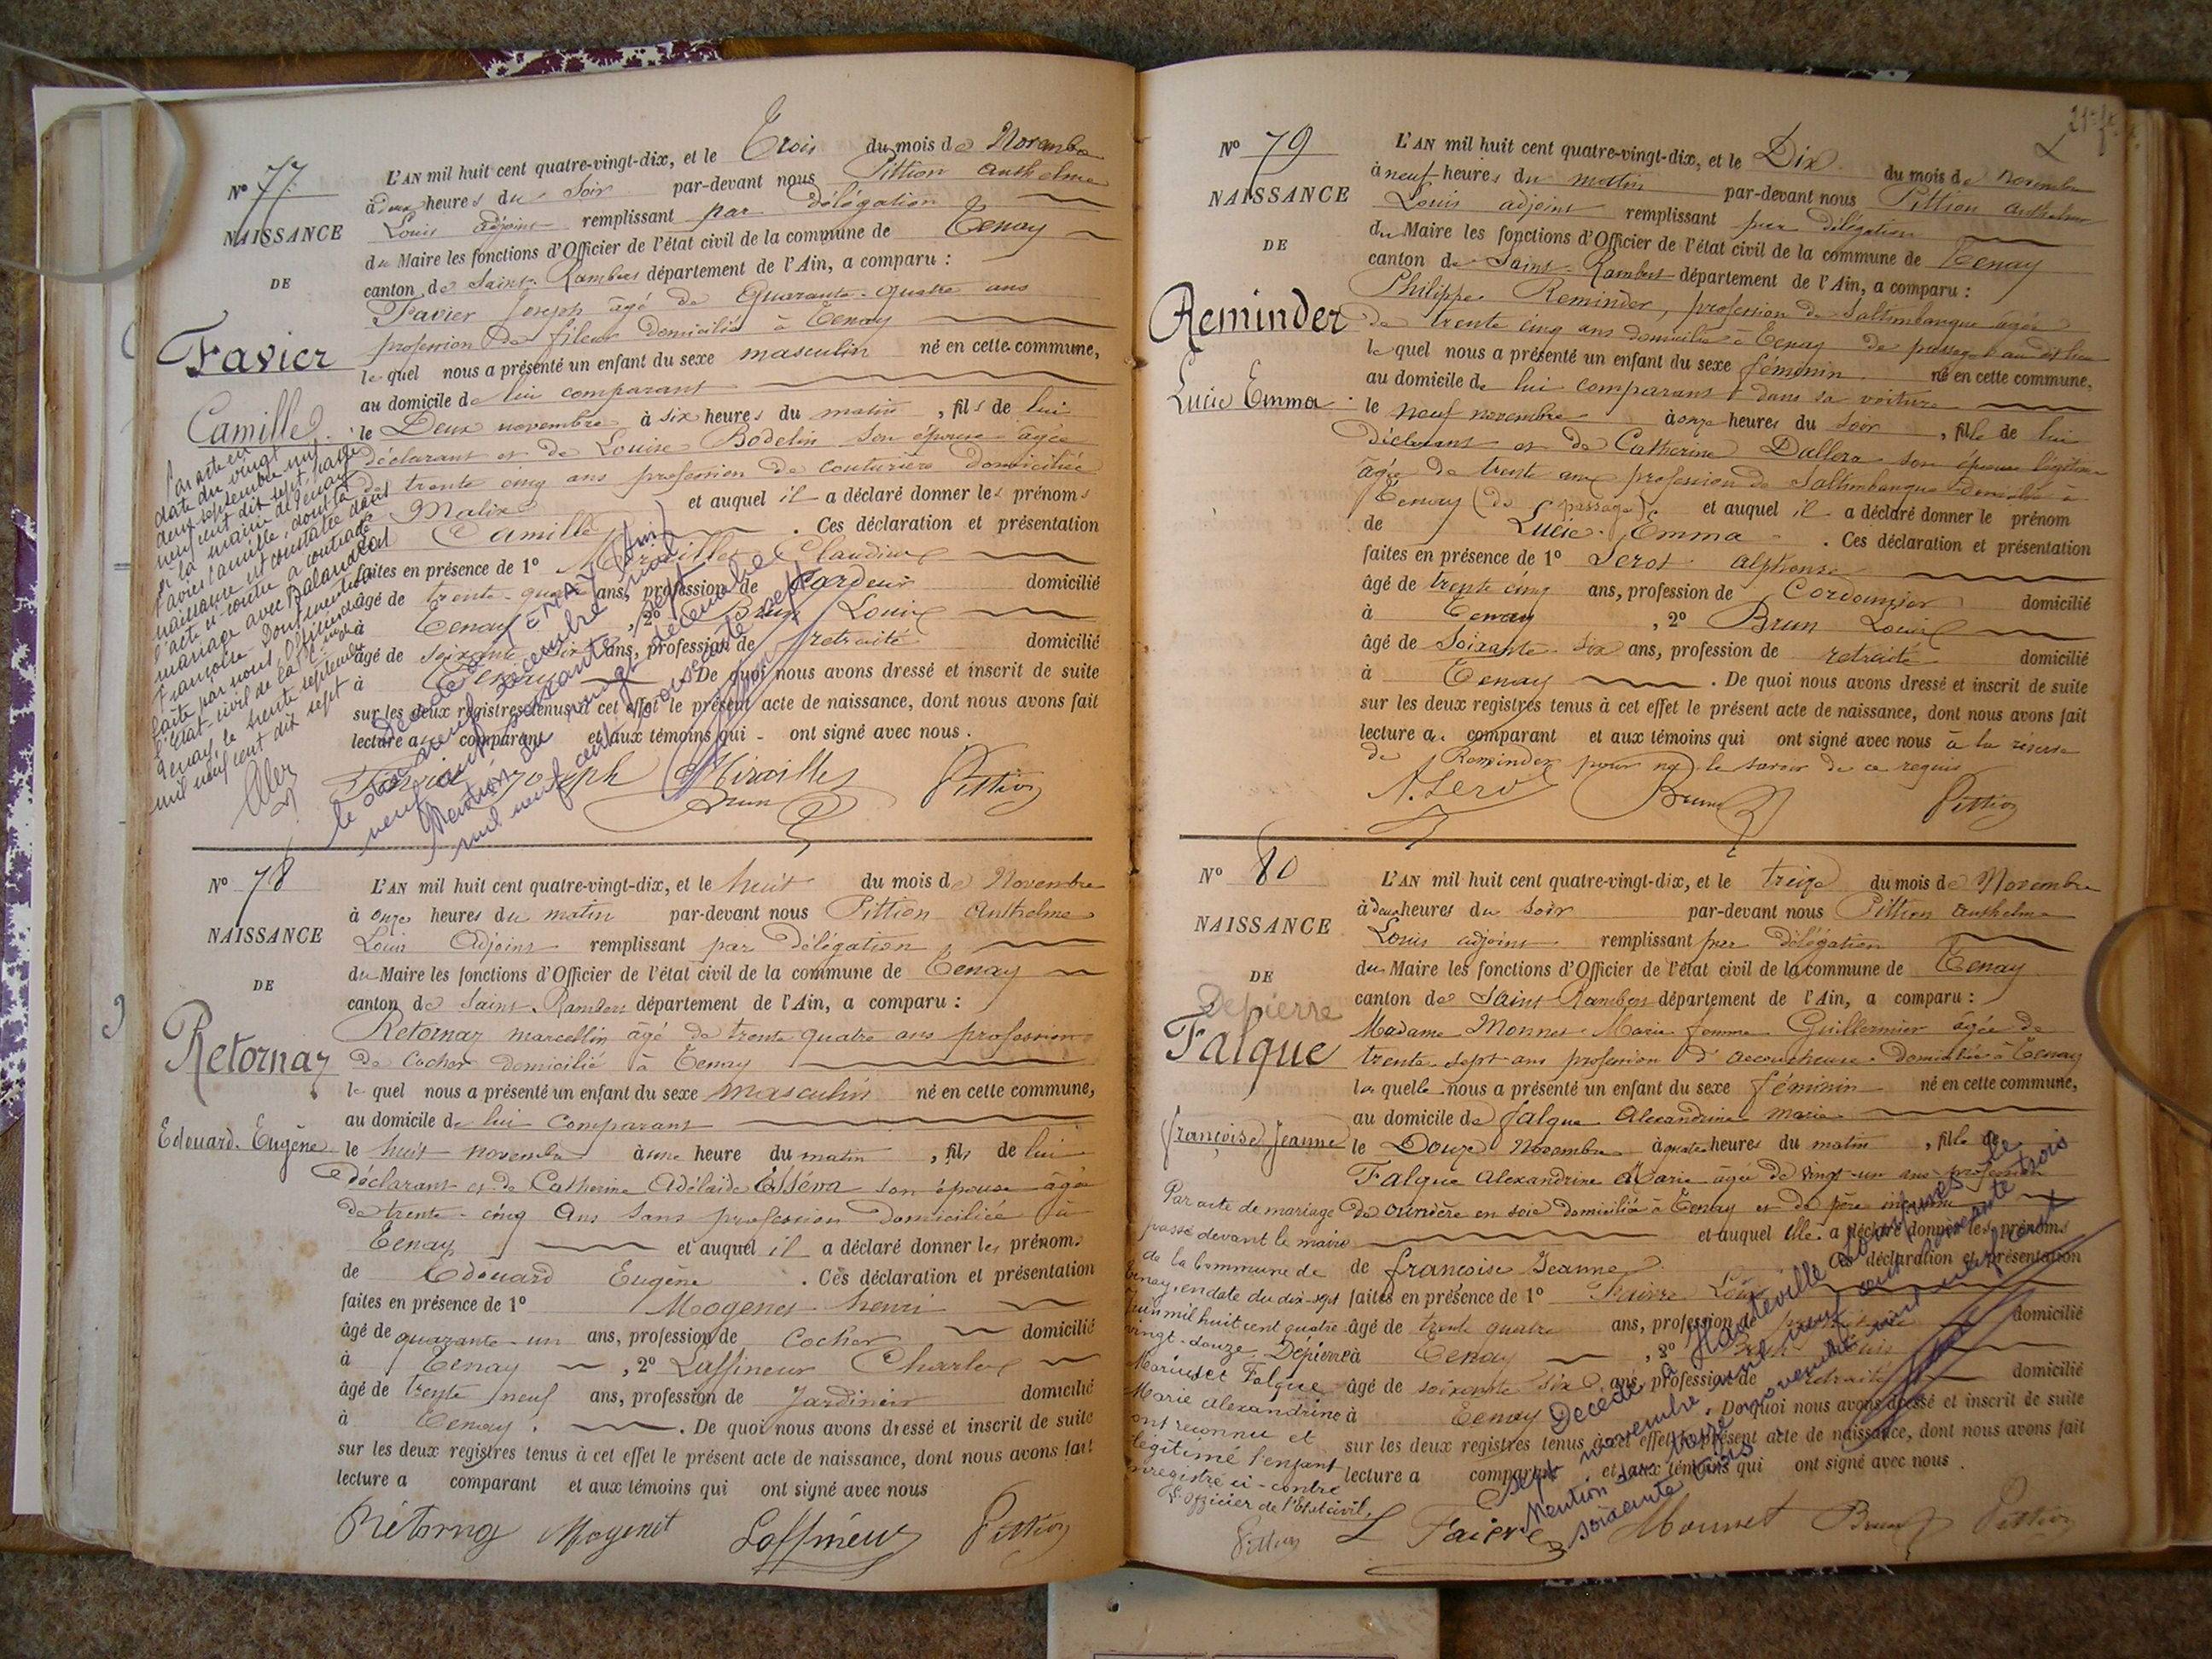 Nº 77
NAISSANCE
DE
Favier
Camille
L'AN mil huit cent quatre-vingt-dix, et le Trois du mois de Novembre
à deux heures du soir par-devant nous Pittion Anthelme
Louis adjoint remplissant par délégation
du Maire les fonctions d'Officier de l'état civil de la commune de Tenay
canton de Saint-Rambert département de l'Ain, a comparu :
Favier Joseph âgé de Quarante-quatre ans
profession de fileur domicilié à Tenay
lequel nous a présenté un enfant du sexe masculin né en cette commune,
au domicile de lui comparant
le Deux novembre à six heures du matin, fils de lui
déclarant et de Louise Bodelin son épouse âgée
de trente cinq ans profession de couturière domiciliée
à Malix et auquel il a déclaré donner les prénoms
Camille. Ces déclaration et présentation
faites en présence de 1º Miraillès Claudius
âgé de trente-quatre ans, profession de cardeur domicilié
à Tenay, 2º Brun Louis
âgé de soixante six ans, profession de retraité domicilié
à Tenay. De quoi nous avons dressé et inscrit de suite
sur les deux registres tenus à cet effet le présent acte de naissance, dont nous avons fait
lecture au comparant et aux témoins qui ont signé avec nous.
Favier Joseph Miraillès Brun Pittion
Par acte en
date du vingt
deux septembre mil
neuf cent dix sept, passé
à la mairie de Tenay
Favier Camille, dont la
naissance est constatée dans
l'acte ci-contre a contracté
mariage avec Balandras
Françoise
faite par nous officier de
l'état civil de la commune
Tenay, le trente septembre
mil neuf cent dix sept
Décédé à TENAY (Ain)
le dix neuf décembre mil
neuf cent soixante sept
Mention du vingt décembre
mil neuf cent soixante sept
Nº 78
NAISSANCE
DE
Retornaz
Edouard Eugène
L'AN mil huit cent quatre-vingt-dix, et le huit du mois de Novembre
à onze heures du matin par-devant nous Pittion Anthelme
Louis Adjoint remplissant par délégation
du Maire les fonctions d'Officier de l'état civil de la commune de Tenay
canton de Saint-Rambert département de l'Ain, a comparu :
Retornaz Marcellin âgé de trente quatre ans profession
de cocher domicilié à Tenay
lequel nous a présenté un enfant du sexe masculin né en cette commune,
au domicile de lui comparant
le huit novembre à une heure du matin, fils de lui
déclarant et de Catherine Adélaïde son épouse âgée
de trente-cinq ans sans profession domiciliée à
Tenay et auquel il a déclaré donner les prénoms
de Edouard Eugène. Ces déclaration et présentation
faites en présence de 1º Mogenet henri
âgé de quarante-un ans, profession de cocher domicilié
à Tenay, 2º Laffineur Charles
âgé de trente neuf ans, profession de Jardinier domicilié
à Tenay. De quoi nous avons dressé et inscrit de suite
sur les deux registres tenus à cet effet le présent acte de naissance, dont nous avons fait
lecture a comparant et aux témoins qui ont signé avec nous
Rétorna Mogenet Laffineur Pittion
Nº 79
NAISSANCE
DE
Reminder
Lucie Emma
L'AN mil huit cent quatre-vingt-dix, et le Dix du mois de novembre
à neuf heures du matin par-devant nous Pittion Anthelme
Louis adjoint remplissant par délégation
du Maire les fonctions d'Officier de l'état civil de la commune de Tenay
canton de Saint-Rambert département de l'Ain, a comparu :
Philippe Reminder, profession de Saltimbanque âgé
de trente cinq ans domicilié à Tenay de passage audit lieu
lequel nous a présenté un enfant du sexe féminin né en cette commune,
au domicile de lui comparant dans sa voiture
le neuf novembre à onze heures du soir, fille de lui
déclarant et de Catherine Dallera son épouse légitime
âgée de trente ans profession de Saltimbanque domiciliée à
Tenay (de passage) et auquel il a déclaré donner le prénom
de Lucie-Emma. Ces déclaration et présentation
faites en présence de 1º Serot Alphonse
âgé de trente cinq ans, profession de Cordonnier domicilié
à Tenay, 2º Brun Louis
âgé de Soixante-six ans, profession de retraité domicilié
à Tenay. De quoi nous avons dressé et inscrit de suite
sur les deux registres tenus à cet effet le présent acte de naissance, dont nous avons fait
lecture au comparant et aux témoins qui ont signé avec nous à la réserve
de Reminder pour ne le savoir de ce requis
A. Sero Brun Pittion
Nº 80
NAISSANCE
DE
Depierre
Falque
françoise Jeanne
L'AN mil huit cent quatre-vingt-dix, et le treize du mois de Novembre
à deux heures du soir par-devant nous Pittion Anthelme
Louis adjoint remplissant par délégation
du Maire les fonctions d'Officier de l'état civil de la commune de Tenay
canton de Saint-Rambert département de l'Ain, a comparu :
Madame Monnet Marie femme Guillermier âgée de
trente-sept ans profession d'accoucheuse domiciliée à Tenay
laquelle nous a présenté un enfant du sexe féminin né en cette commune,
au domicile de falque Alexandrine Marie
le Douze Novembre à quatre heures du matin, fille de
Falque Alexandrine Marie âgée de vingt-un ans profession
de ouvrière en soie domiciliée à Tenay et de père inconnu
et auquel elle a déclaré donner les prénoms
de françoise Jeanne. Ces déclaration et présentation
faites en présence de 1º Faivre Louis
âgé de trente quatre ans, profession de domicilié
à Tenay, 2º Brun Louis
âgé de soixante six ans, profession de retraité domicilié
à Tenay. De quoi nous avons dressé et inscrit de suite
sur les deux registres tenus à cet effet le présent acte de naissance, dont nous avons fait
lecture a comparant et aux témoins qui ont signé avec nous.
L Faivre Monnet Brun Pittion
Par acte de mariage
passé devant le maire
de la commune de
Tenay, en date du dix-sept
Juin mil huit cent quatre
vingt-douze, Dépierre
Marius et Falque
Marie Alexandrine
ont reconnu et
légitimé l'enfant
enregistré ci-contre
L'officier de l'Etat civil,
Pittion
Décédée à Hauteville Lompnes le
sept novembre mil neuf cent soixante trois
Mention du novembre mil neuf cent
soixante trois